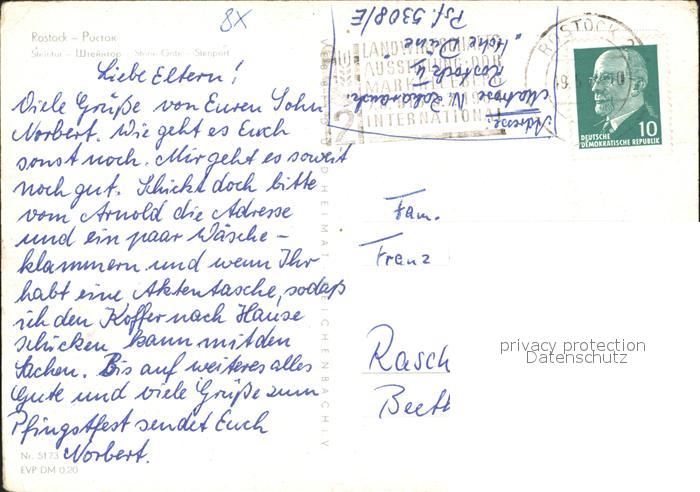 8x
Rostock – Росток
Steintor – Штейнтор – Stone-Gate – Stenport
Liebe Eltern!
Viele Grüße von Euren Sohn
Norbert. Wie geht es Euch
sonst noch. Mir geht es soweit
noch gut. Schickt doch bitte
vom Arnold die Adresse
und ein paar Wäsche-
klammern und wenn Ihr
habt eine Aktentasche, sodaß
ich den Koffer nach Hause
schicken kann mit den
Sachen. Bis auf weiteres alles
Gute und viele Grüße zum
Pfingstfest sendet Euch
Norbert.
Nr. 5173
EVP DM 0,20
BILD UND HEIMAT REICHENBACH i. V.
Adresse:
Matrose N.
Rostock 4
"Hohe Düne"
Psf. 5308/E
LANDWIRTSCHAFTS
AUSSTELLUNG DDR
MARKKLEEBERG
INTERNATIONAL
ROSTOCK
DEUTSCHE
DEMOKRATISCHE REPUBLIK
10
Fam.
Franz
Rasch
Beeth
privacy protection
Datenschutz